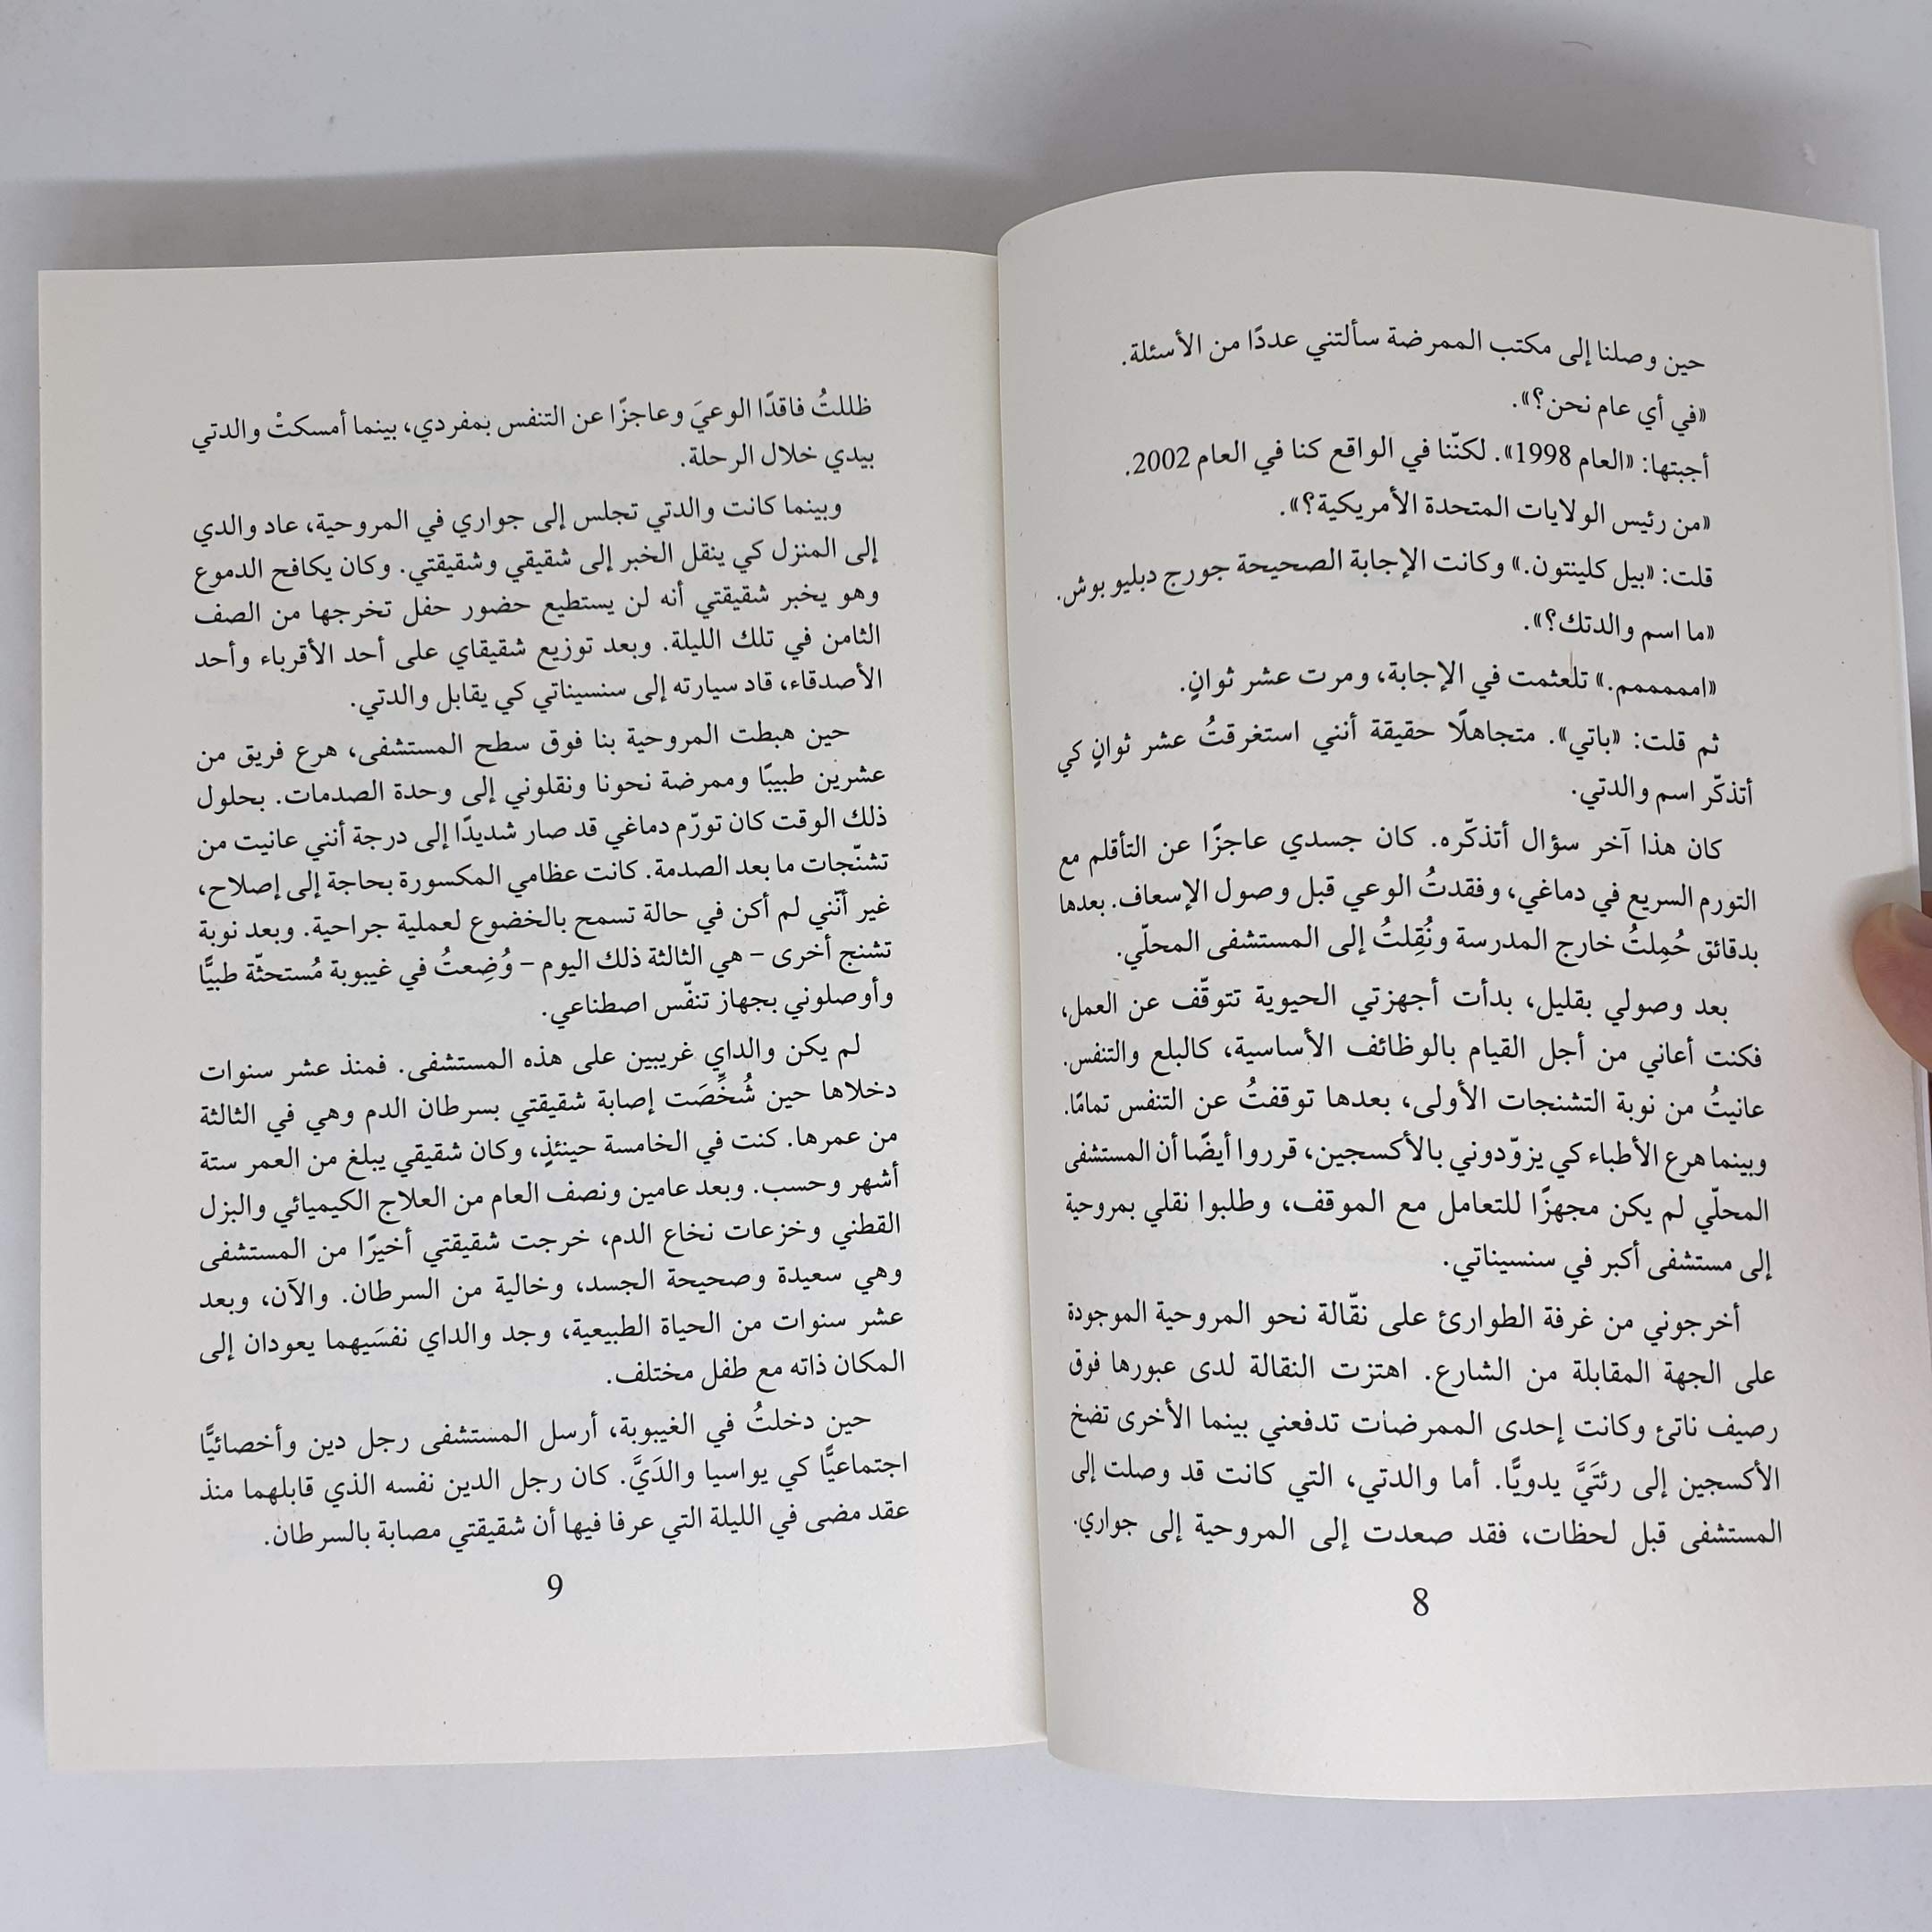 حين وصلنا إلى مكتب الممرضة سألتني عددًا من الأسئلة.
«في أي عام نحن؟».
أجبتها: «العام 1998». لكنّنا في الواقع كنا في العام 2002.
«من رئيس الولايات المتحدة الأمريكية؟».
قلت: «بيل كلينتون.» وكانت الإجابة الصحيحة جورج دبليو بوش.
«ما اسم والدتك؟».
«اممممم.» تلعثمت في الإجابة، ومرت عشر ثوانٍ.
ثم قلت: «باتي». متجاهلًا حقيقة أنني استغرقتُ عشر ثوانٍ كي
أتذكّر اسم والدتي.
كان هذا آخر سؤال أتذكّره. كان جسدي عاجزًا عن التأقلم مع
التورم السريع في دماغي، وفقدتُ الوعي قبل وصول الإسعاف. بعدها
بدقائق حُمِلتُ خارج المدرسة ونُقِلتُ إلى المستشفى المحلّي.
بعد وصولي بقليل، بدأت أجهزتي الحيوية تتوقّف عن العمل،
فكنت أعاني من أجل القيام بالوظائف الأساسية، كالبلع والتنفس.
عانيتُ من نوبة التشنجات الأولى، بعدها توقفتُ عن التنفس تمامًا.
وبينما هرع الأطباء كي يزوّدوني بالأكسجين، قرروا أيضًا أن المستشفى
المحلّي لم يكن مجهزًا للتعامل مع الموقف، وطلبوا نقلي بمروحية
إلى مستشفى أكبر في سنسيناتي.
أخرجوني من غرفة الطوارئ على نقّالة نحو المروحية الموجودة
على الجهة المقابلة من الشارع. اهتزت النقالة لدى عبورها فوق
رصيف ناتئ وكانت إحدى الممرضات تدفعني بينما الأخرى تضخ
الأكسجين إلى رئتَيَّ يدويًّا. أما والدتي، التي كانت قد وصلت إلى
المستشفى قبل لحظات، فقد صعدت إلى المروحية إلى جواري.
8
ظللتُ فاقدًا الوعيَ وعاجزًا عن التنفس بمفردي، بينما أمسكتْ والدتي
بيدي خلال الرحلة.
وبينما كانت والدتي تجلس إلى جواري في المروحية، عاد والدي
إلى المنزل كي ينقل الخبر إلى شقيقي وشقيقتي. وكان يكافح الدموع
وهو يخبر شقيقتي أنه لن يستطيع حضور حفل تخرجها من الصف
الثامن في تلك الليلة. وبعد توزيع شقيقاي على أحد الأقرباء وأحد
الأصدقاء، قاد سيارته إلى سنسيناتي كي يقابل والدتي.
حين هبطت المروحية بنا فوق سطح المستشفى، هرع فريق من
عشرين طبيبًا وممرضة نحونا ونقلوني إلى وحدة الصدمات. بحلول
ذلك الوقت كان تورّم دماغي قد صار شديدًا إلى درجة أنني عانيت من
تشنّجات ما بعد الصدمة. كانت عظامي المكسورة بحاجة إلى إصلاح،
غير أنّني لم أكن في حالة تسمح بالخضوع لعملية جراحية. وبعد نوبة
تشنج أخرى – هي الثالثة ذلك اليوم – وُضِعتُ في غيبوبة مُستحثّة طبيًّا
وأوصلوني بجهاز تنفّس اصطناعي.
لم يكن والداي غريبين على هذه المستشفى. فمنذ عشر سنوات
دخلاها حين شُخِّصَت إصابة شقيقتي بسرطان الدم وهي في الثالثة
من عمرها. كنت في الخامسة حينئذٍ، وكان شقيقي يبلغ من العمر ستة
أشهر وحسب. وبعد عامين ونصف العام من العلاج الكيميائي والبزل
القطني وخزعات نخاع الدم، خرجت شقيقتي أخيرًا من المستشفى
وهي سعيدة وصحيحة الجسد، وخالية من السرطان. والآن، وبعد
عشر سنوات من الحياة الطبيعية، وجد والداي نفسَيهما يعودان إلى
المكان ذاته مع طفل مختلف.
حين دخلتُ في الغيبوبة، أرسل المستشفى رجل دين وأخصائيًّا
اجتماعيًّا كي يواسيا والدَيَّ. كان رجل الدين نفسه الذي قابلهما منذ
عقد مضى في الليلة التي عرفا فيها أن شقيقتي مصابة بالسرطان.
9